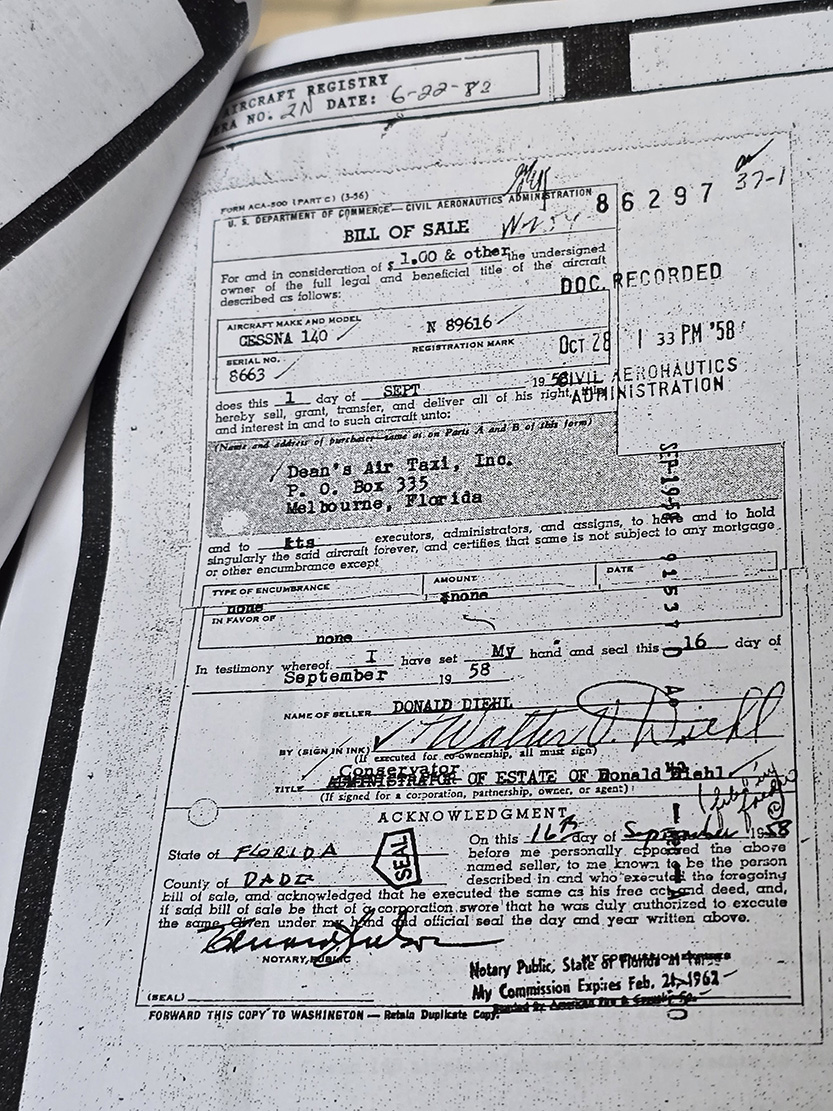 AIRCRAFT REGISTRY
NO. 2N DATE: 6-22-83
37-1
FORM ACA-500 (PART C) (3-56)
U. S. DEPARTMENT OF COMMERCE—CIVIL AERONAUTICS ADMINISTRATION
86297
BILL OF SALE
For and in consideration of $ 1.00 & other the undersigned
owner of the full legal and beneficial title of the aircraft
described as follows:
DOC. RECORDED
AIRCRAFT MAKE AND MODEL
CESSNA 140
N 89616
REGISTRATION MARK
SERIAL NO.
8663
OCT 28 1 33 PM '58
CIVIL AERONAUTICS
ADMINISTRATION
does this 1 day of SEPT 1958
hereby sell, grant, transfer, and deliver all of his right,
and interest in and to such aircraft unto:
(Name and address of purchaser—same as on Parts A and B of this form)
Dean's Air Taxi, Inc.
P. O. Box 335
Melbourne, Florida
SEP-19-58
and to its executors, administrators, and assigns, to have and to hold
singularly the said aircraft forever, and certifies that same is not subject to any mortgage
or other encumbrance except
TYPE OF ENCUMBRANCE
AMOUNT
DATE
none
$none
IN FAVOR OF
none
In testimony whereof I have set My hand and seal this 16 day of
September 19 58
NAME OF SELLER DONALD DIEHL
BY (SIGN IN INK) Walter Diehl
(If executed for co-ownership, all must sign)
Conservator
TITLE ADMINISTRATOR OF ESTATE OF Donald Diehl
(If signed for a corporation, partnership, owner, or agent)
ACKNOWLEDGMENT
State of FLORIDA
County of DADE
SEAL
On this 16th day of September 1958
before me personally appeared the above
named seller, to me known to be the person
described in and who executed the foregoing
bill of sale, and acknowledged that he executed the same as his free act and deed, and,
if said bill of sale be that of a corporation, swore that he was duly authorized to execute
the same. Given under my hand and official seal the day and year written above.
NOTARY PUBLIC
Notary Public, State of Florida at
My Commission Expires Feb. 21, 1962
(SEAL)
FORWARD THIS COPY TO WASHINGTON — Retain Duplicate Copy.